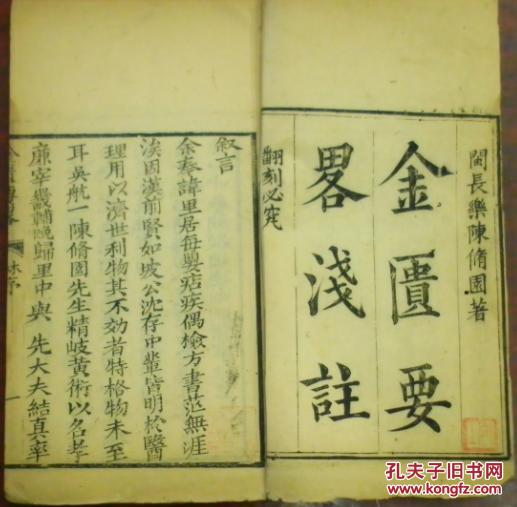 閩長樂陳脩園著
金匱要
畧淺註
翻刻必究
叙言
余奉諱里居每嬰痁疾偶檢方書茫無涯
涘因漢前賢如坡公沈存中輩皆明於醫
理用以濟世利物其不效者特格物未至
耳吳航一陳脩園先生精岐黃術以名孝
廉宰畿輔晩歸里中與 先大夫結真率
一
孔夫子旧书网
KONGFZ.COM